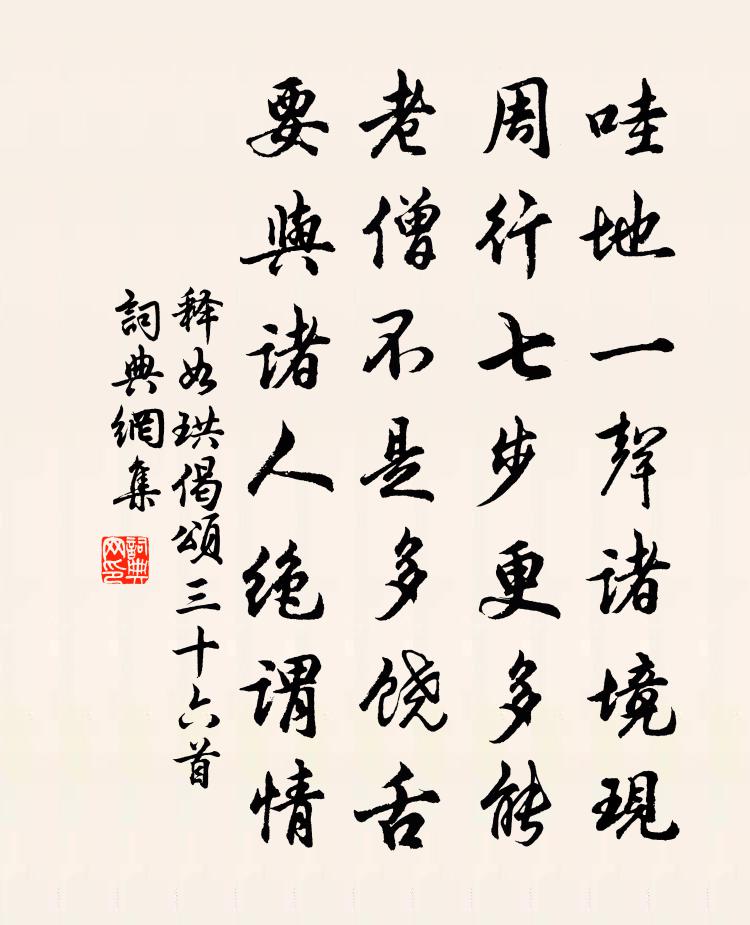 哇地一聲諸境現
周行七步更多能
老僧不是多饶舌
要與諸人绝謂情
释如珙偈頌三十六首
詞典網集
詞典網印